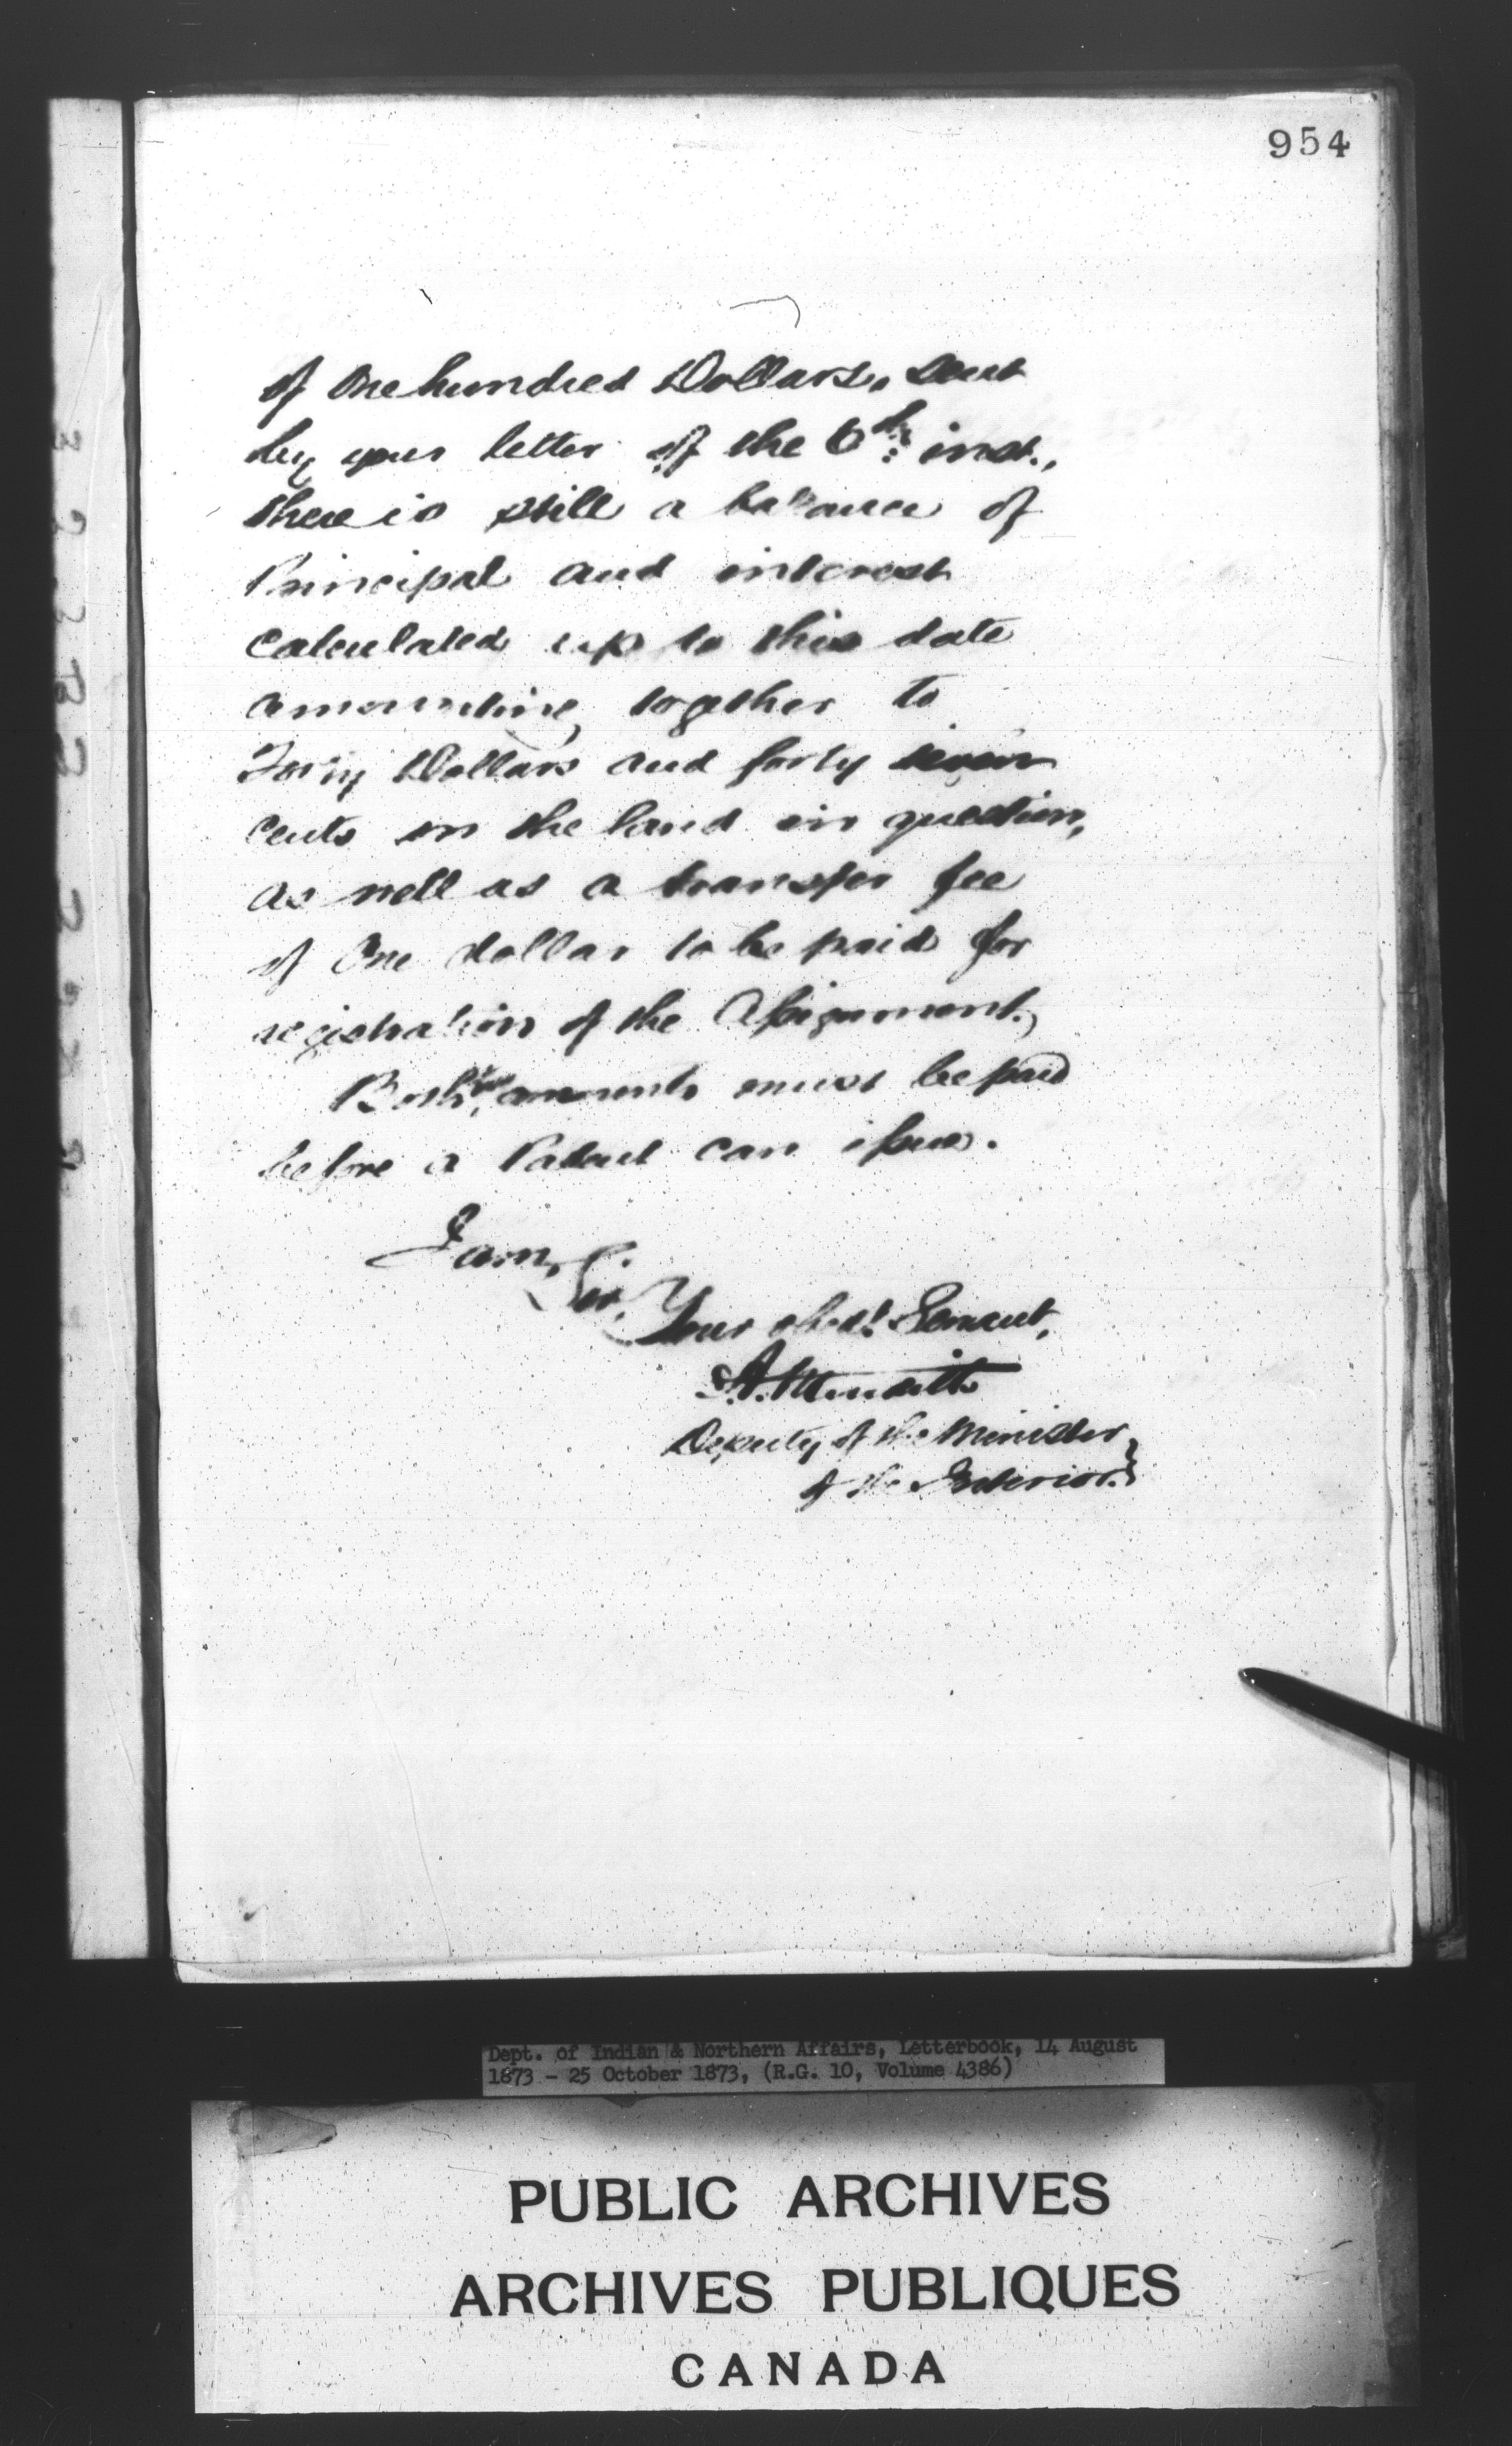 954
of One hundred Dollars, sent
by your letter of the 6th inst.,
there is still a balance of
Principal and interest
calculated up to this date
amounting together to
Forty Dollars and forty seven
cents on the land in question,
as well as a transfer fee
of One dollar to be paid for
registration of the Assignment.
Both amounts must be paid
before a Patent can issue.
I am,
Sir,
Your obedt. Servant,
A. Meredith
Deputy of the Minister
of the Interior.
Dept. of Indian & Northern Affairs, Letterbook, 14 August
1873 - 25 October 1873, (R.G. 10, Volume 4386)
PUBLIC ARCHIVES
ARCHIVES PUBLIQUES
CANADA